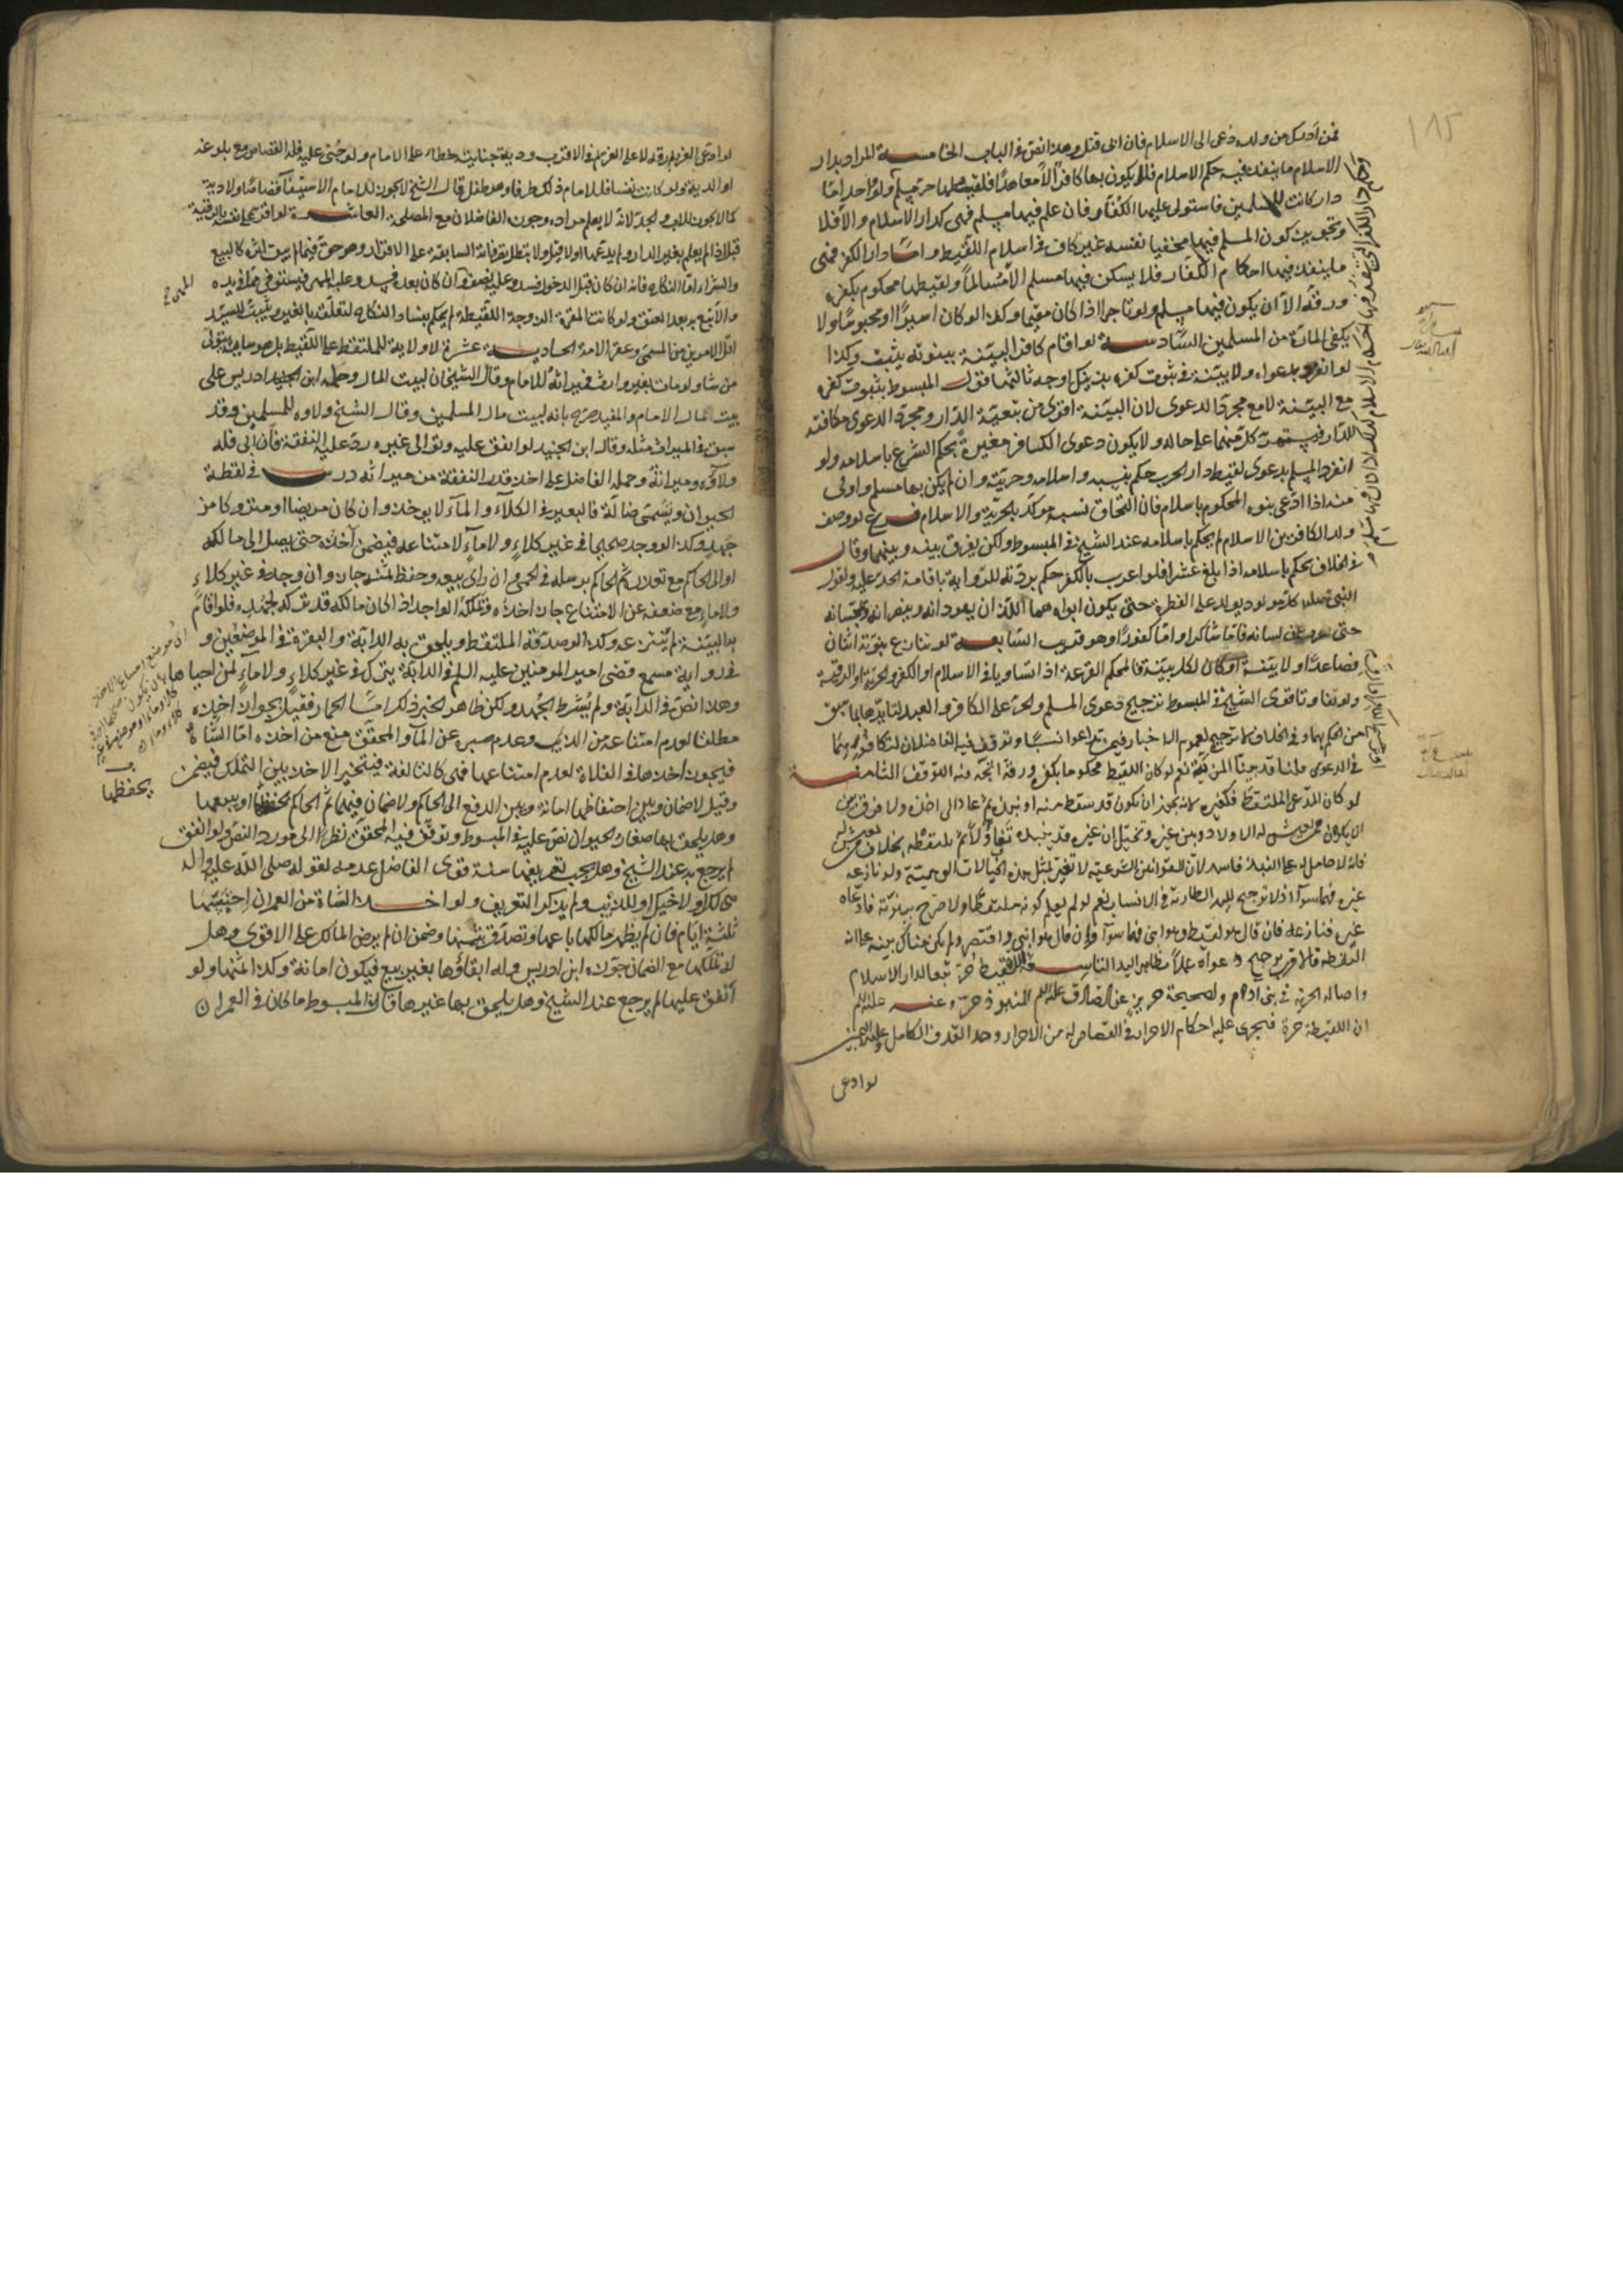 فمن أدرك من ولده دُعى الى الاسلام فان ابى قتل وهذا نص فى الباب الخامسة المراد بدار
الاسلام ما ينفذ فيه حكم الاسلام فلا يكون بها كافر الا معاهدًا فلقيطها حر مسلم
دار كانت للمسلمين فاستولى عليها الكفار فان علم فيها مسلم فهى كدار الاسلام والا فلا
وتجويز كون المسلم فيها مخفيا نفسه غير كاف فى اسلام اللقيط واما دار الكفر فهى
ما ينفذ فيها احكام الكفار فلا يسكن فيها مسلم الا مسالماً ولقيطها محكوم بكفره
ورقه الا ان يكون فيها مسلم ولو تاجرا اذا كان مقيما وكذا لو كان اسيرًا او محبوسًا ولا
يكفى المارة من المسلمين السادسة لو اقام كافر البينة ببنوته يثبت وكذا
لو انفرد بدعواه ولا بينة وفى ثبوت كفره بذينك اوجه ثالثها قول المبسوط بثبوت كفره
مع البينة لا مع مجرد الدعوى لان البينة اقوى من تبعية الدار ومجرد الدعوى مكافئة
للدار فيستمر كل منهما على حاله ولا يكون دعوى الكافر مغيرة بحكم الشرع باسلامه ولو
انفرد المسلم بدعوى لقيط دار الحرب حكم بنسبه واسلامه وحريته وان لم يكن بها مسلم واولى
منه اذا ادعى بنوه المحكوم باسلامه فان التحاق نسبه موكد للحرية والاسلام فرع لو وصف
ولد الكافرين الاسلام لم يحكم باسلامه عند الشيخ فى المبسوط ولكن يفرق بينه وبينهما وقال
فى الخلاف يحكم باسلامه اذا بلغ عشرا فلو اعرب بالكفر حكم بردته للرواية باقامة الحد عليه ولقول
النبى كل مولود يولد على الفطرة حتى يكون ابواه هما اللذان يهودانه وينصرانه ويمجسانه
حتى يعرب عن لسانه فاما شاكرا واما كفورًا وهو قريب السابعة لو تنازع بنوته اثنان
فصاعدًا ولا بينة او كان لكل بينة فالحكم القرعة اذا تساويا فى الاسلام او الكفر والحرية او الرقية
ولو تفاوتا قوى الشيخ فى المبسوط ترجيح دعوى المسلم والحر على الكافر والعبد لتايدهما بما سبق
من الحكم بهما وفى الخلاف لا ترجيح لعموم الاخبار فيمن تداعوا نسبًا وتوقف فيه الفاضلان لتكافؤهما
فى الدعوى قلنا قد بينا المزية نعم لو كان اللقيط محكوما بكفره ورقه اتجه منه التوقف الثامنة
لو كان المدعى الملتقط فكغيره لانه يجوز ان يكون قد سقط منه او نبذه ثم عاد الى اخذه ولا فرق بين
ان يكون ممن يعيش له الاولاد وبين غيره وتخيل ان غيره قد ينبذه تفاؤلًا ثم يلتقطه بخلاف من يعيش له
فانه لا حامل له على النبذ فاسد لان القوانين الشرعية لا تغير لمثل هذه الخيالات الوهمية ولو نازعه
غيره فهما سوآء اذ لا ترجيح لليد الطارية فى الانساب نعم لو لم يعلم كونه ملتقطا ولا صرح ببنوته فادعاه
غيره فنازعه فان قال هو لقيط وهو ابنى فهما سوآ وان قال هو ابنى واقتصر ولم يكن هناك بينة على انه
التقطه فالاقرب ترجيح دعواه عملاً بظاهر اليد التاسعة اللقيط حر تبعا لدار الاسلام
واصالة الحرية فى بنى ادم ولصحيحة حريز عن الصادق عليه السلم المنبوذ حر وعنه عليه السلم
ان اللقيطة حرة فيجرى عليه احكام الاحرار فى القصاص له من الاحرار وحد القذف الكامل
لو ادعى
لو ادعى العزيز رقه لا على الاقرب ودية جنايته خطاء على الامام ولو جنى عليه فله القصاص مع بلوغه
او الدية ولو كانت نفسا فللامام ذلك طرفا وهو طفل قال الشيخ لا يجوز للامام الاستيفآ قصاصًا ولا دية
كما لا يجوز للاب والجد لانه لا يعلم مراده وجوزه الفاضلان مع المصلحة العاشرة لو اقر على نفسه بالرقية
قبل اذا لم يعلم بغير الدار ولم يدعها اولا قبل ولا تبطل تصرفاته السابقة على الاقرار وهو حق فيما لم يبق اثره كالبيع
والشرا اما النكاح فانه ان كان قبل الدخول فسد وعليه نصف المهر وان كان بعده فسد وعليه المهر فيستوفى مما فى يده
والا تبع به بعد العتق ولو كانت المقرة الزوجة اللقيطة لم يحكم بفساد النكاح لتعلقه بالغير ويثبت للسيد
اقل الامرين من المسمى وعقر الامة الحادية عشرة لا ولاية للملتقط على اللقيط بل هو سايبة يتولى
من شا ولو مات بغير وارث فميراثه للامام وقال الشيخان لبيت المال وحمله ابن ادريس على
بيت مال الامام والمفيد صرح بانه لبيت مال المسلمين وقال الشيخ ولاوه للمسلمين وقد
سبق فى الميراث مثله وقال ابن الجنيد لو انفق عليه وتوالى غيره رد عليه النفقة فان ابى فله
ولآؤه وميراثه وحمله الفاضل على اخذ قدر النفقة من ميراثه درس فى لقطة
الحيوان ويسمى ضالة فالبعير فى الكلآء والمآء لا يوخذ وان كان مريضا او متروكا من
جهد وكذا لو وجد صحيحا فى غير كلاءٍ ولا مآءٍ لامتناعه فيضمن آخذه حتى يصل الى مالكه
او الى الحاكم مع تعذره ثم الحاكم يرسله فى الحمى وان راى بيعه وحفظ ثمنه جاز وان وجد فى غير كلاءٍ
ولا ماءٍ مع ضعفه عن الامتناع جاز اخذه وتملكه الواجد اذا كان مالكه قد تركه لجهده فلو اقام
بها البينة لم ينتزعه وكذا لو صدقه الملتقط ويلحق به الدابة والبقرة فى الموضعين و
فى رواية مسمع قضى امير المومنين عليه السلم فى الدابة يترك فى غير كلاءٍ ولا مآءٍ لمن احياها
وهذا نص فى الدابة ولم يشترط الجهد ولكن ظاهر الخبر ذلك امّا الحمار فقيل يجوز اخذه
مطلقا لعدم امتناعه من الذيب وعدم صبره عن المآء والمحقق منع من اخذه امّا الشاة
فيجوز اخذها فى الفلاة لعدم امتناعها فهى كالتالفة فيتخير الاخذ بين التملك فيضمن
وقيل لا ضمان وبين احتفاظها امانة وبين الدفع الى الحاكم ولا ضمان فيهما ثم الحاكم يحفظها او يبيعها
وهل يلحق بها صغار الحيوان نص عليه فى المبسوط وتوقف فيه المحقق نظرًا الى مورد النص ولو انفق
لم يرجع به عند الشيخ وهل يجب تعريفها سنة قوى الفاضل عدمه لقوله صلى الله عليه واله
هى لك او لاخيك او للذئب ولم يذكر التعريف ولو اخذ الشاة من العمران احتبسها
ثلثة ايام فان لم يظهر مالكها باعها وتصدق بثمنها وضمن ان لم يرض المالك على الاقوى وهل
له تملكها مع الضمان جوزه ابن ادريس وله ابقاؤها بغير بيع فيكون امانة وكذا ثمنها ولو
انفق عليها لم يرجع عند الشيخ وهل يلحق بها غيرها قال فى المبسوط ما كان فى العمران
يحفظها